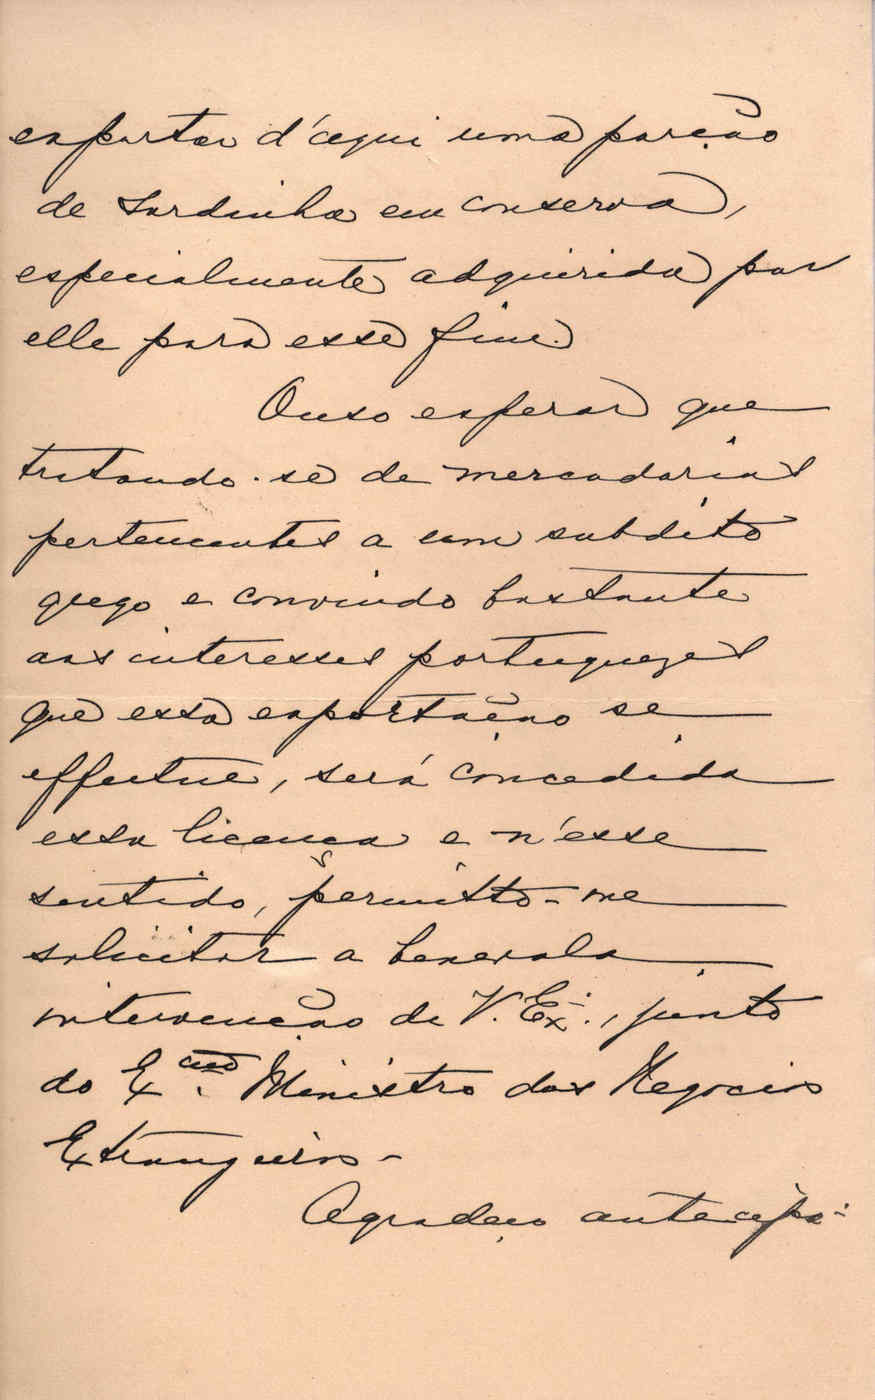 exportar d'aqui uma porção
de sardinha em conserva,
especialmente adquirida por
elle para esse fim.
Ouso esperar que
tratando-se de mercadorias
pertencentes a um subdito
grego e convindo bastante
aos interesses portuguezes
que essa exportação se
effectue, será concedida
essa licença e n'esse
sentido, permitto-me
solicitar a benevola
intervenção de V. Ex.ª, junto
do Ex.cmo Ministro dos Negocios
Extrangeiros-
Agradeço antecipa-